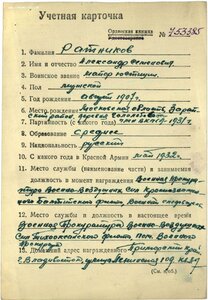 Учетная карточка
Орденская книжка
№ 753385
1. Фамилия Ратников
2. Имя и отчество Александр Семенович
3. Воинское звание майор юстиции.
4. Пол мужской
5. Год рождения август 1907г.
6. Место рождения Московская область, Зарай-
ский район, деревня
7. Партийность (с какого года) член ВКП(б) 1931г
8. Образование среднее
9. Национальность русский
10. С какого года в Красной Армии май 1932г.
11. Место службы (наименование части) и занимаемая
должность в момент награждения Военная Прокура-
тура Военно-Воздушных Сил Краснознамен-
ного Балтийского флота, Военный следователь
12. Место службы и должность в настоящее время
Военная Прокуратура Военно-Воздушных
Сил Тихоокеанского флота, Пом. Военного
Прокурора
13. Домашний адрес награжденного Приморский край
г. Владивосток, улица
(См. на об.)